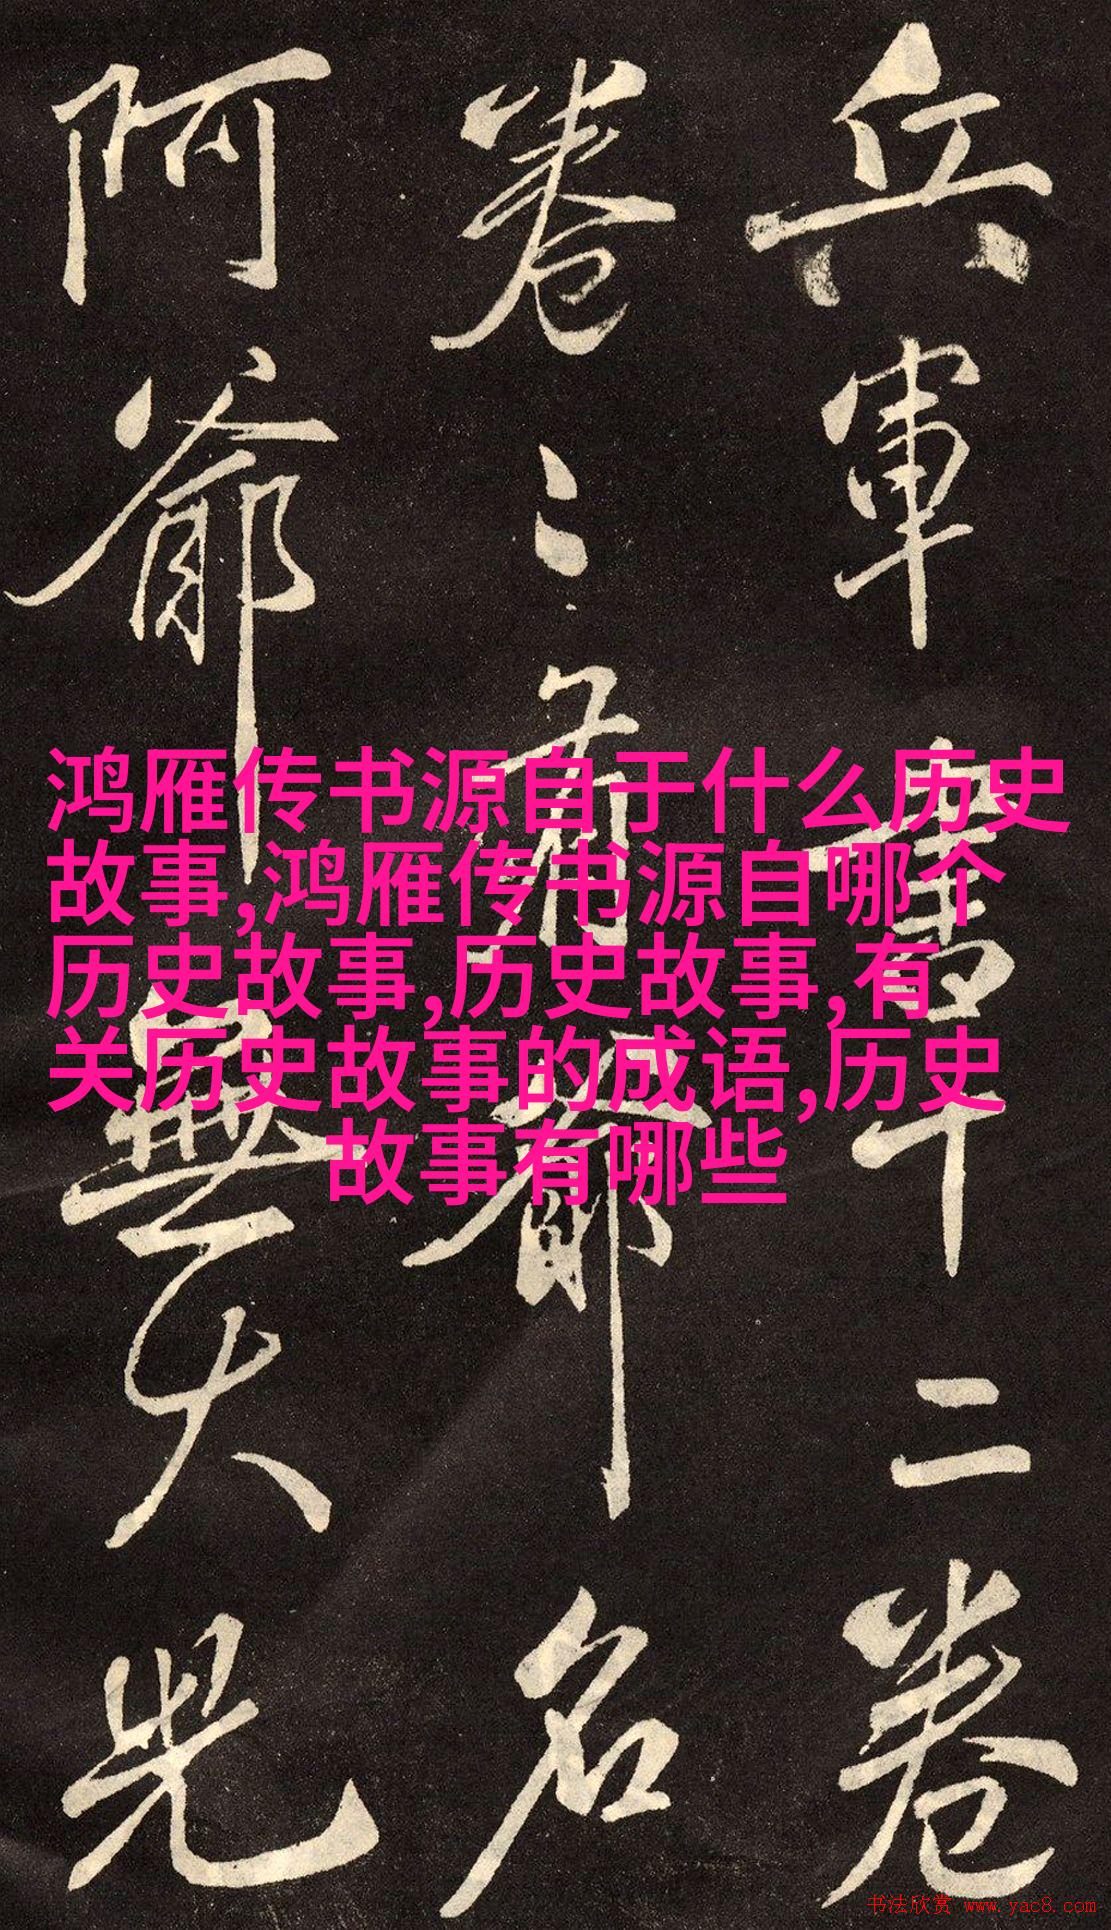 兵軍書十二卷
卷々有爺名
阿爺無大兒
鸿雁传书源自于什么历史
故事,鸿雁传书源自哪个
历史故事,历史故事,有
关历史故事的成语,历史
故事有哪些
书法欣赏 www.yac8.com